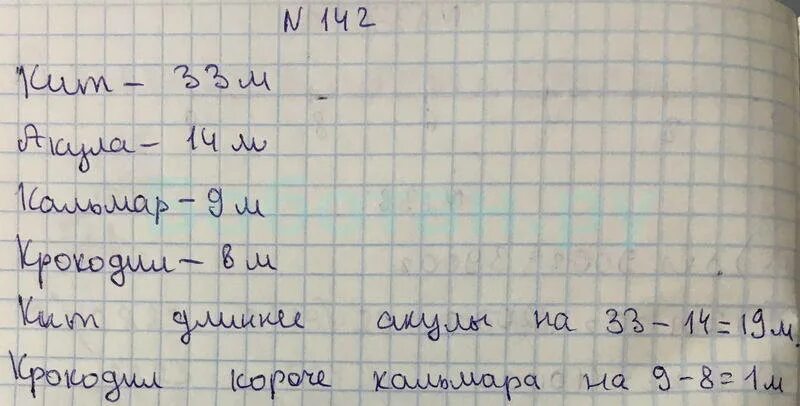 N 142
Кит - 33 м
Акула - 14 м
Кальмар - 9 м
Крокодил - 8 м
Кит длиннее акулы на 33 - 14 = 19 м
Крокодил короче кальмара на 9 - 8 = 1 м